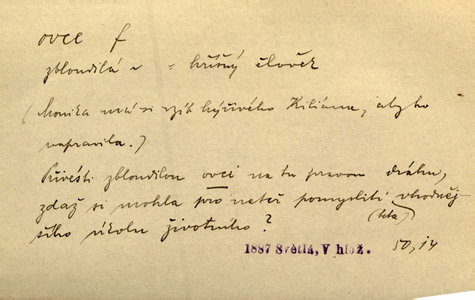 ovce f
zbloudilá ~ = hříšný člověk
(Monika má si vzíti hýřivého Kiliána, aby ho
napravila.)
Přivésti zbloudilou ovci na tu pravou dráhu,
zdaž si mohla pro neteř pomysliti vhodněj-
(teta)
šího úkolu životního?
1887 Světlá, V hlož. 50,14